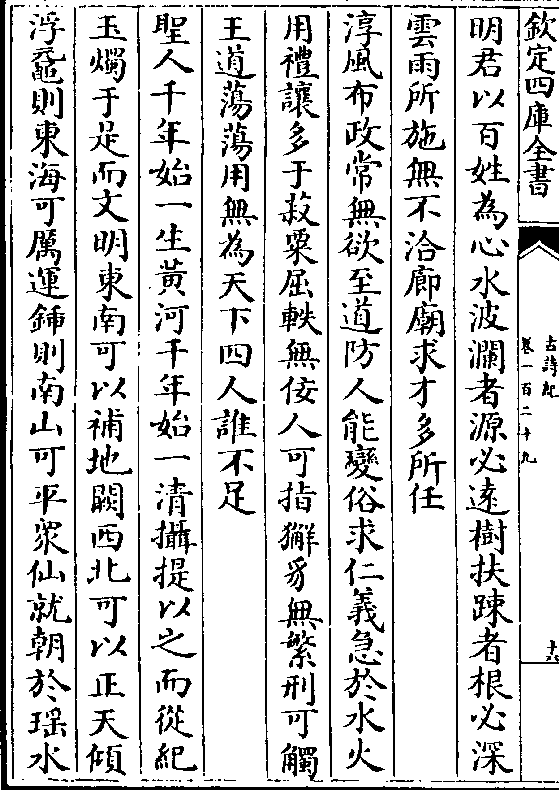 欽定四庫全書
古詩紀
卷一百二十九
十六
明君以百姓為心水波瀾者源必遠樹扶踈者根必深
雲雨所施無不洽廊廟求才多所任
淳風布政常無欲至道防人能變俗求仁義急於水火
用禮讓多于菽粟屈軼無佞人可指獬豸無繁刑可觸
王道蕩蕩用無為天下四人誰不足
聖人千年始一生黃河千年始一清攝提以之而從紀
玉燭于是而文明東南可以補地闕西北可以正天傾
浮黿則東海可厲運鍤則南山可平衆仙就朝於瑶水